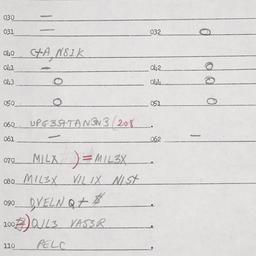 030 —
031 — 032 O
040 C+A, N8IK
041 — 042 O
043 O 044 O
050 O 051 O
060 UPG3 (208
061 — 062 —
070 MILX )=MIL3X
080 MIL3X VILIX NIST
090 VELN Q+ $
100 OJL3 VA53R
110 PELC